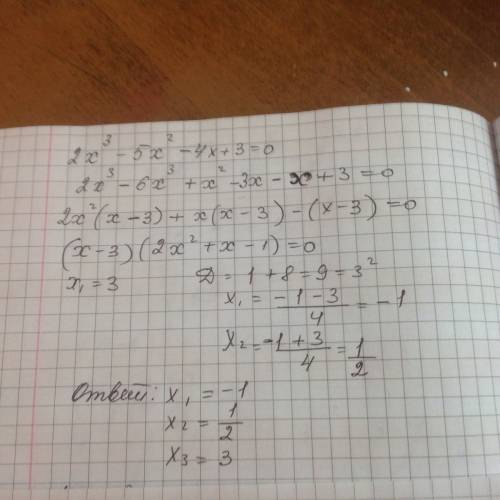 2x³ - 5x² - 4x + 3 = 0
2x³ - 6x³ + x² - 3x - x + 3 = 0
2x²(x - 3) + x(x - 3) - (x - 3) = 0
(x - 3)(2x² + x - 1) = 0
x₁ = 3 D = 1 + 8 = 9 = 3²
x₁ = (-1 - 3)/4 = -1
x₂ = (-1 + 3)/4 = 1/2
Ответ: x₁ = -1
x₂ = 1/2
x₃ = 3